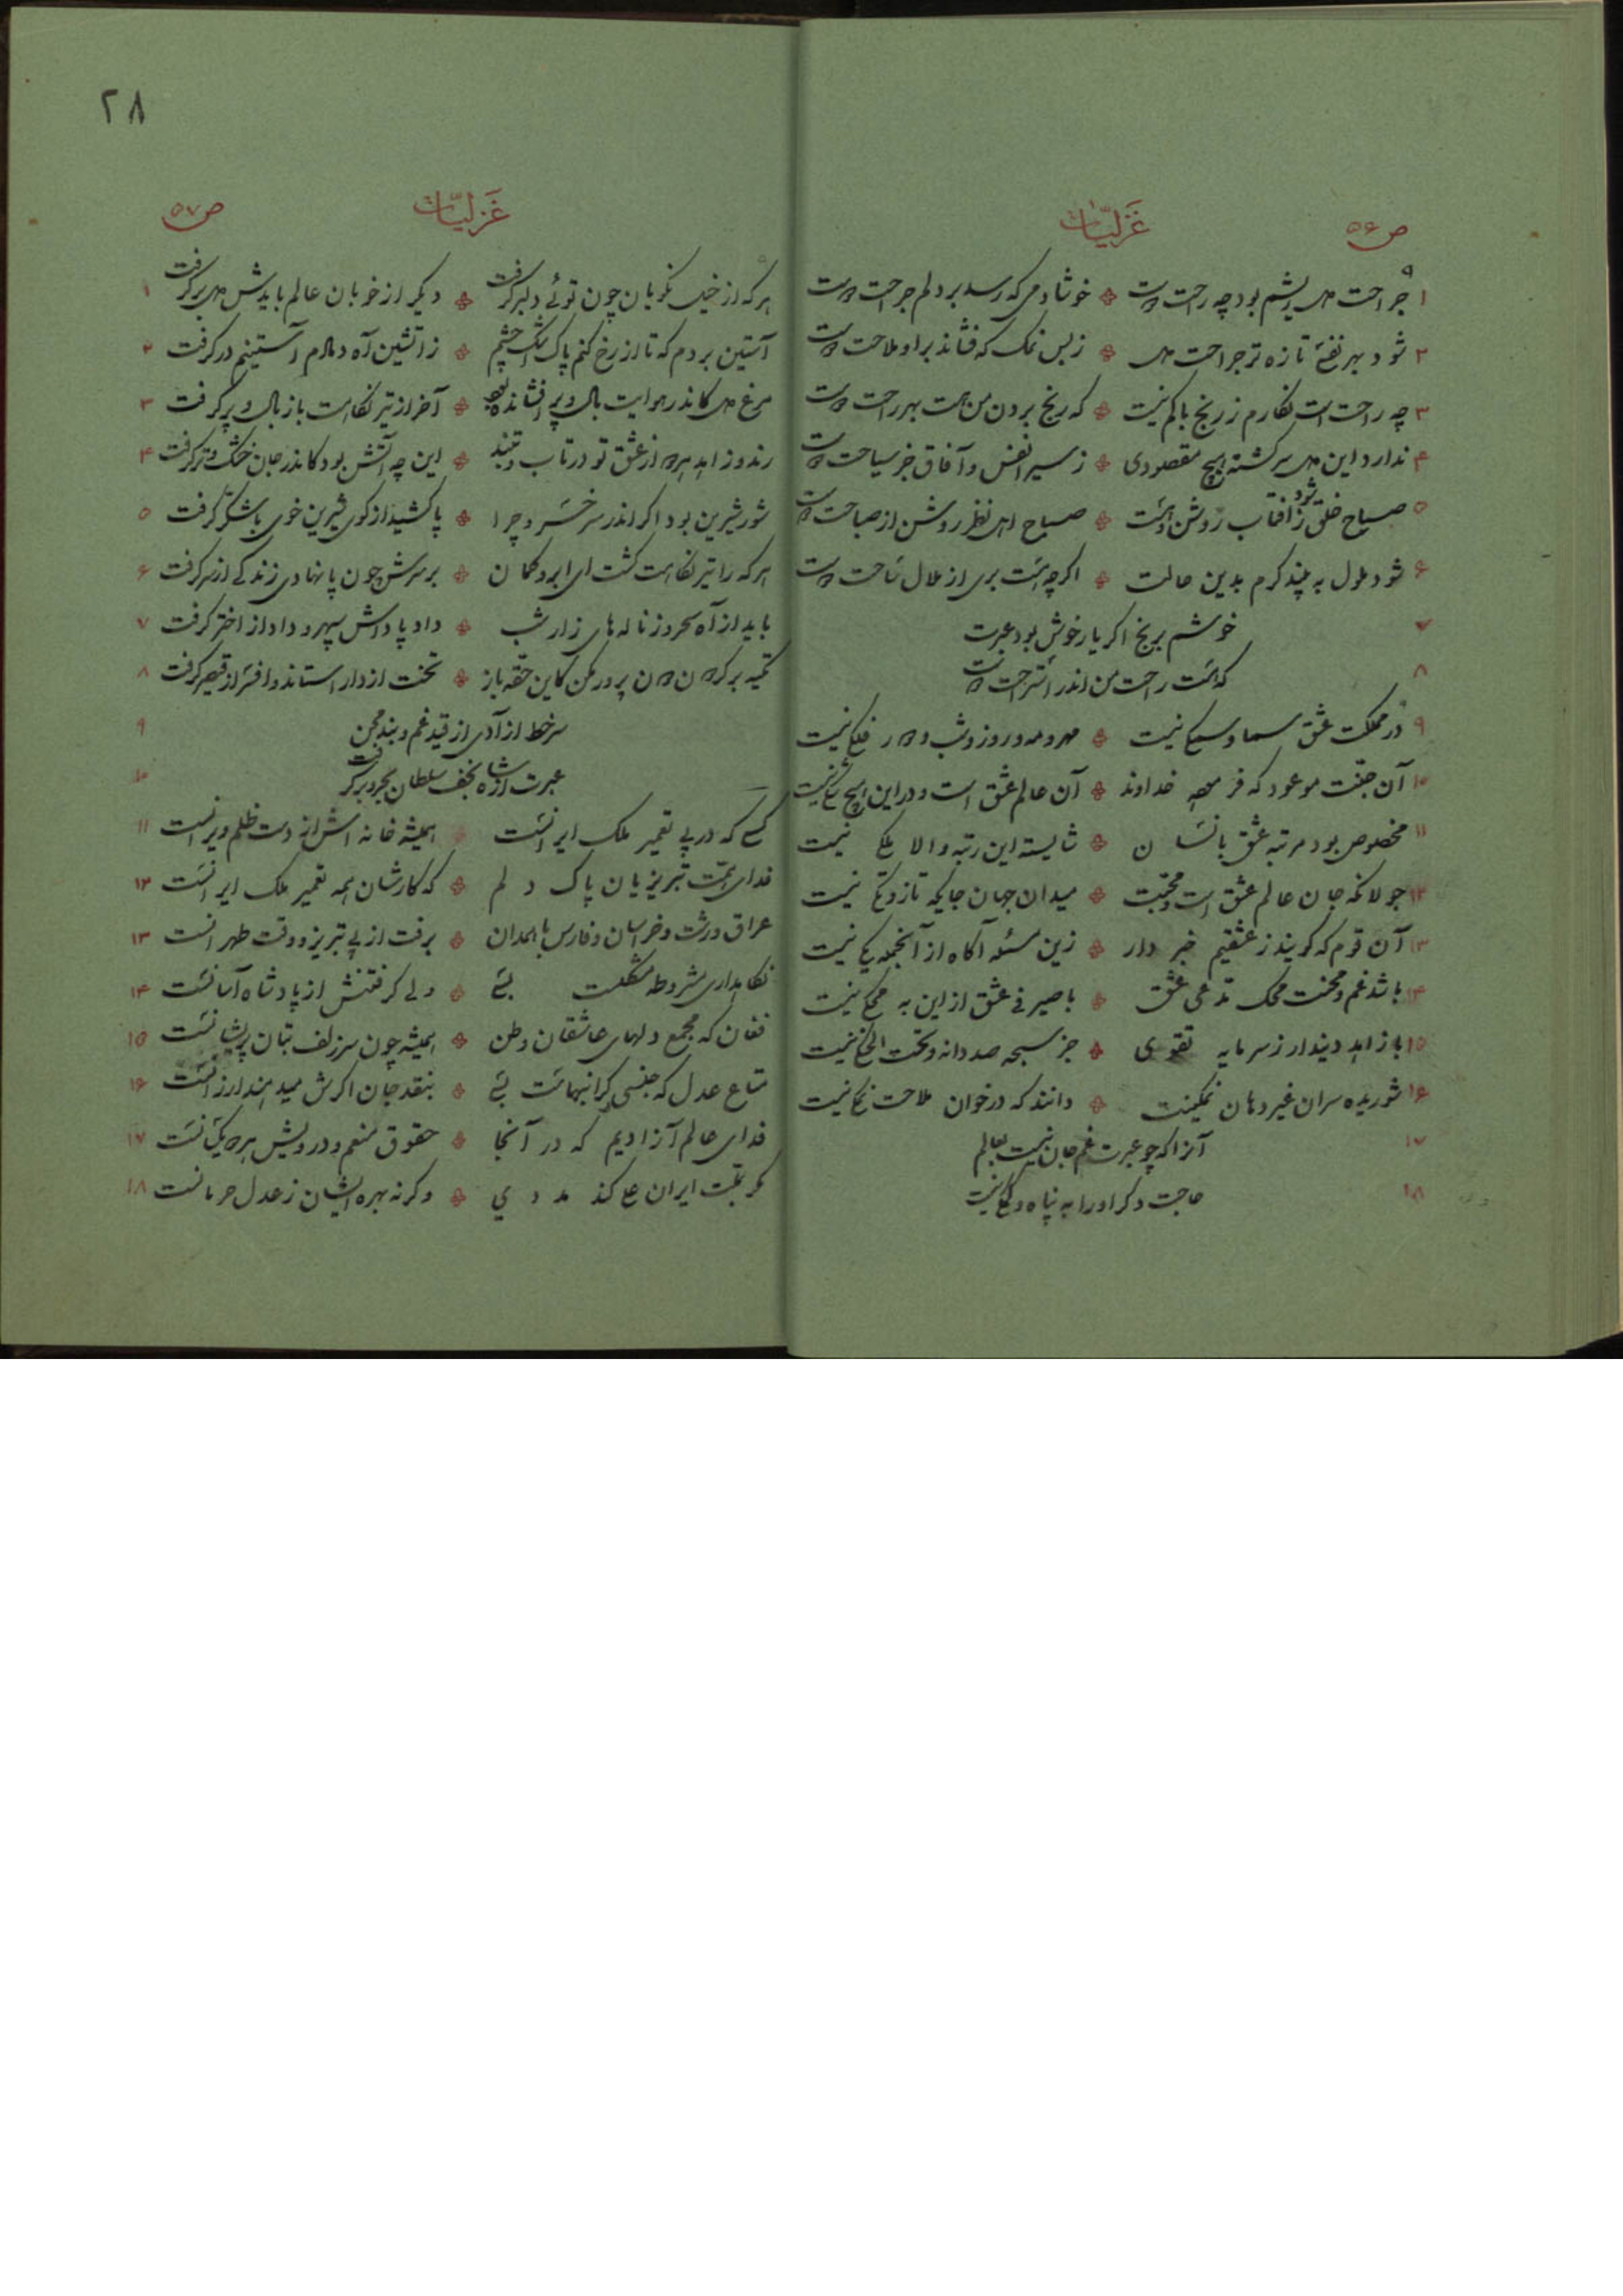 ص ۵۶
غزلیّات
۱ جراحت دل ریشم بود چه راحت دوست خوشا دمی که رسد بر دلم جراحت دوست
۲ شود بهر نفسی تازه تر جراحت دل ز بس نمک که فشاند بر او ملاحت دوست
۳ چه راحت است نگارم ز رنج باکم نیست که رنج بردن من هست بهر راحت دوست
۴ ندارد این دل سرگشته هیچ مقصودی ز سیر انفس و آفاق جز سیاحت دوست
۵ صباح خلق ز آفتاب روشن شود صباح اهل نظر روشن از صباحت دوست
۶ شود ملول به پند کرم بدین حالت اگر چه هست بری از ملال ساحت دوست
۷ خوشم برنج اگر یار خوش بود عبرت
۸ که هست راحت من اندر استراحت دوست
۹ در مملکت عشق سما و سمکی نیست مهر و مه و روز و شب و دور فلکی نیست
۱۰ آن جنّت موعود که فرموده خداوند آن عالم عشق است و در این هیچ شکی نیست
۱۱ مخصوص بود مرتبه عشق بانسان شایسته این رتبه والا ملکی نیست
۱۲ جولانگه جان عالم عشق است و محبّت میدان جهان جایگه تاز و تکی نیست
۱۳ آن قوم که گویند ز عشقیم خبر دار زین مسئله آگاه از آنجمله یکی نیست
۱۴ باشد غم و محنت محک مدّعی عشق با صیرفی عشق از این به محکی نیست
۱۵ با زاهد دیندار ز سرمایه تقوی جز سبحه صد دانه و تحت الحنکی نیست
۱۶ شوریده سران غیر دهان نمکینت دانند که در خوان ملاحت نمکی نیست
۱۷ آنرا که چو عبرت غم جان نیست بعالم
۱۸ حاجت دگر او را به پناه و کمکی نیست
۲۸
غزلیّات
ص ۵۷
هر که از خیل نکویان چون توئی دلبر گرفت دیگر از خوبان عالم بایدش دل بر گرفت ۱
آستین بردم که تا از رخ کنم پاک اشک چشم ز آتشین آه دمادم آستینم در گرفت ۲
مرغ دل کاندر هوایت بال و پر افشانده بود آخر از تیر نگاهت باز بال و پر گرفت ۳
رند و زاهد هر دو از عشق تو در تاب و تبند این چه آتش بود کاندر جان خشک و تر گرفت ۴
شور شیرین بود اگر اندر سر خسرو چرا پا کشید از کوی شیرین خوی با شکّر گرفت ۵
هر که را تیر نگاهت کشت ای ابرو کمان بر سرش چون پا نهادی زندگی از سر گرفت ۶
باید از آه سحر وز ناله های زار شب داد پاداش سپهر و داد از اختر گرفت ۷
تکیه بر گردون دون پرور مکن کاین حقه باز تخت از دارا ستاند و افسر از قیصر گرفت ۸
سر خط آزادی از قید غم و بند محن ۹
عبرت از شاه نجف سلطان بحر و بر گرفت ۱۰
کسی که در پی تعمیر ملک ایرانست همیشه خانه اش از دست ظلم ویرانست ۱۱
فدای همّت تبریزیان پاک دلم که کارشان همه تعمیر ملک ایرانست ۱۲
عراق و رشت و خراسان و فارس با همدان برفت از پی تبریز و وقت طهرانست ۱۳
نگاهداری مشروطه مشکلست بسی ولی گرفتنش از پادشاه آسانست ۱۴
فغان که مجمع دلهای عاشقان وطن همیشه چون سر زلف بتان پریشانست ۱۵
متاع عدل که جنسی گرانبهاست بسی بنقد جان اگرش میدهند ارزانست ۱۶
فدای عالم آزادیم که در آنجا حقوق منعم و درویش هر دو یکسانست ۱۷
مگر بملّت ایران علی کند مددی وگرنه بهره ایشان ز عدل حرمانست ۱۸